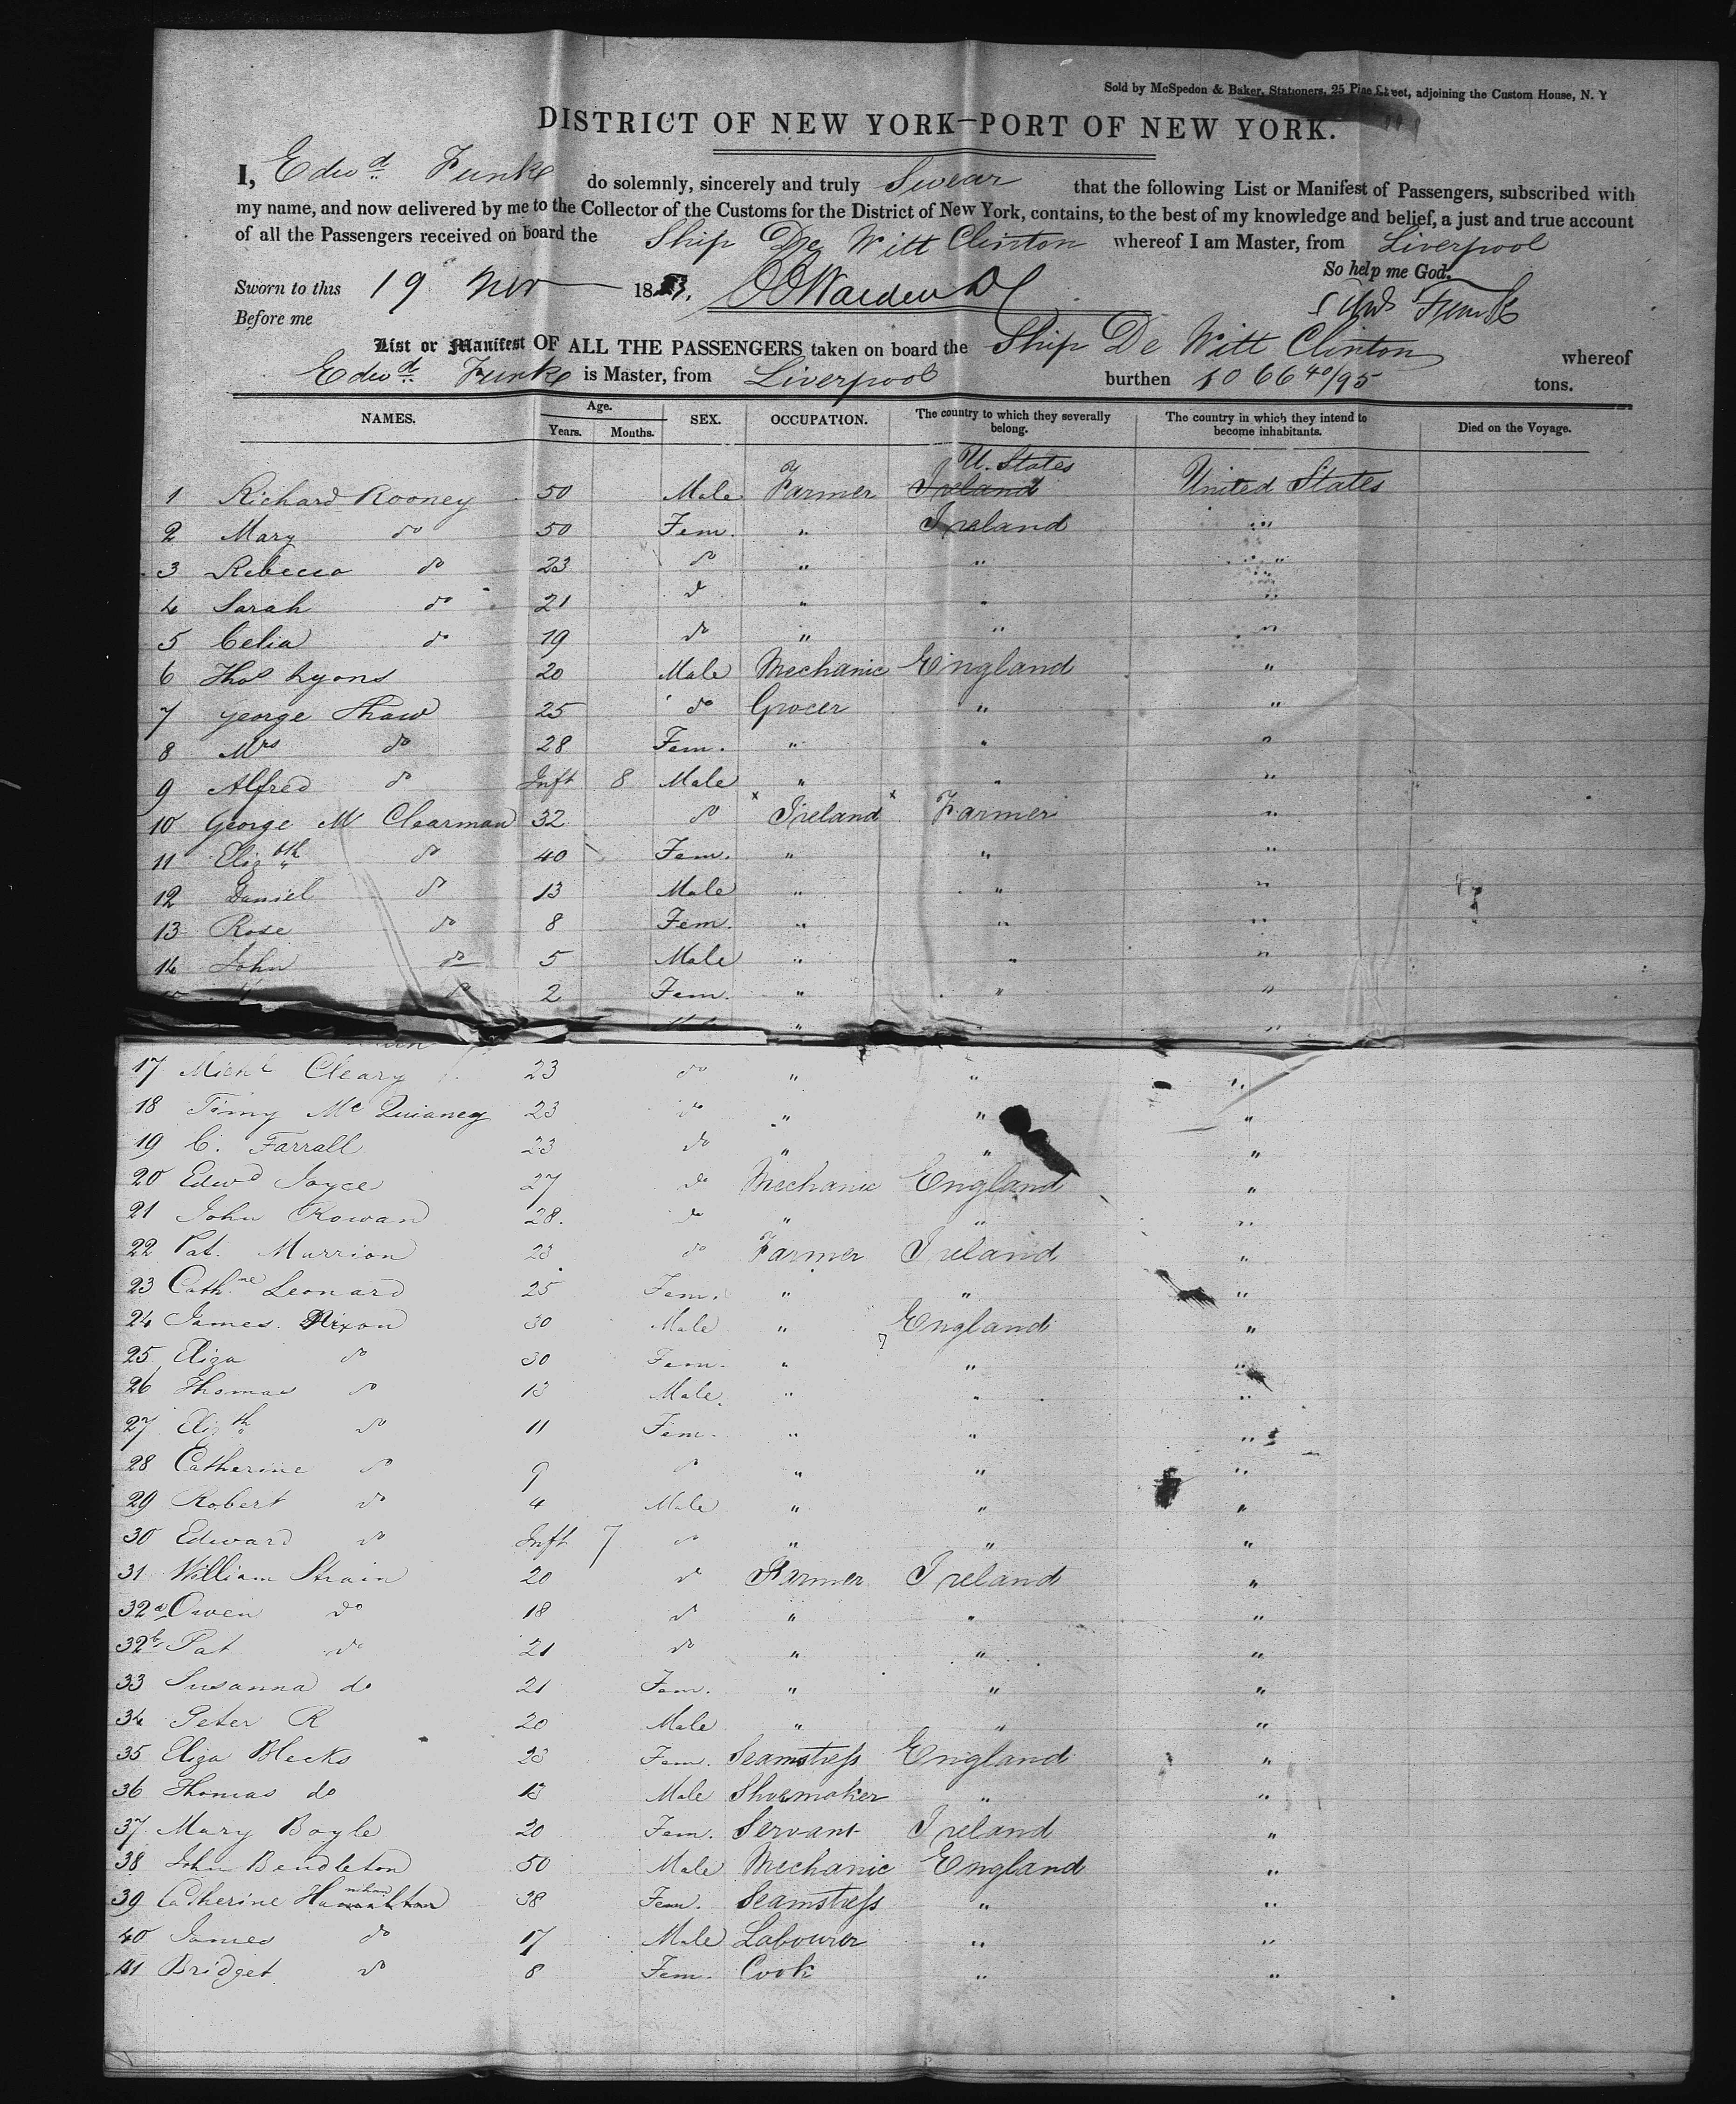 Sold by McSpedon & Baker, Stationers, 25 Pine Street, adjoining the Custom House, N. Y
DISTRICT OF NEW YORK—PORT OF NEW YORK.
I, Edwd Funke do solemnly, sincerely and truly Swear that the following List or Manifest of Passengers, subscribed with
my name, and now delivered by me to the Collector of the Customs for the District of New York, contains, to the best of my knowledge and belief, a just and true account
of all the Passengers received on board the Ship De Witt Clinton whereof I am Master, from Liverpool
So help me God.
Sworn to this 19 Nov 18
Before me
Edwd Funke
List or Manifest OF ALL THE PASSENGERS taken on board the Ship De Witt Clinton whereof
Edwd Funke is Master, from Liverpool burthen 1066 40/95 tons.
NAMES. Age. Years. Months. SEX. OCCUPATION. The country to which they severally belong. The country in which they intend to become inhabitants. Died on the Voyage.
U. States
1 Richard Rooney 50 Male Farmer Ireland United States
2 Mary do 50 Fem. " Ireland "
3 Rebecca do 23 do " " "
4 Sarah do 21 do " " "
5 Celia do 19 do " " "
6 Thos Lyons 20 Male Mechanic England "
7 George Shaw 25 do Grocer " "
8 Mrs do 28 Fem. " " "
9 Alfred do Inft 8 Male " " "
10 George Mc Clearman 32 do x Ireland x Farmer "
11 Elizbth do 40 Fem. " " "
12 Daniel do 13 Male " " "
13 Rose do 8 Fem. " " "
14 John do 5 Male " " "
do 2 Fem. " " "
Male " " "
17 Michl Cleary 23 do " " "
18 Timy Mc Quianey 23 do " " "
19 C. Farrall 23 do " " "
20 Edwd Joyce 27 do Mechanic England "
21 John Rowan 28. do " " "
22 Pat. Murrion 23 do Farmer Ireland "
23 Cathne Leonard 25 Fem. " " "
24 James Nixon 30 Male " England "
25 Eliza do 30 Fem. " " "
26 Thomas do 13 Male " " "
27 Elizth do 11 Fem. " " "
28 Catherine do 9 do " " "
29 Robert do 4 Male " " "
30 Edward do Inft 7 do " " "
31 William Strain 20 do Farmer Ireland "
32a Owen do 18 do " " "
32b Pat do 21 do " " "
33 Susanna do 21 Fem. " " "
34 Peter R 20 Male " " "
35 Eliza Blecks 23 Fem. Seamstress England "
36 Thomas do 13 Male Shoemaker " "
37 Mary Boyle 20 Fem. Servant Ireland "
38 John Bendleton 50 Male Mechanic England "
39 Catherine 38 Fem. Seamstress " "
40 James do 17 Male Labourer " "
41 Bridget do 8 Fem. Cook " "